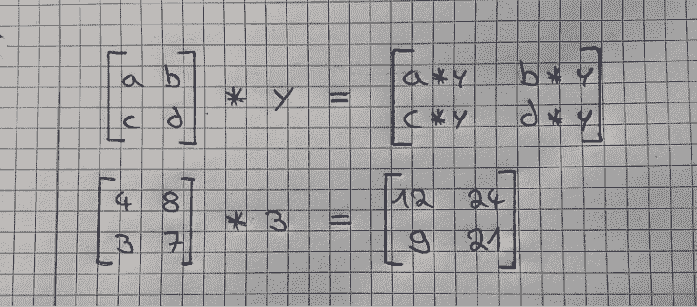 [a b
c d] * y = [a*y b*y
c*y d*y]
[4 8
3 7] * 3 = [12 24
9 21]